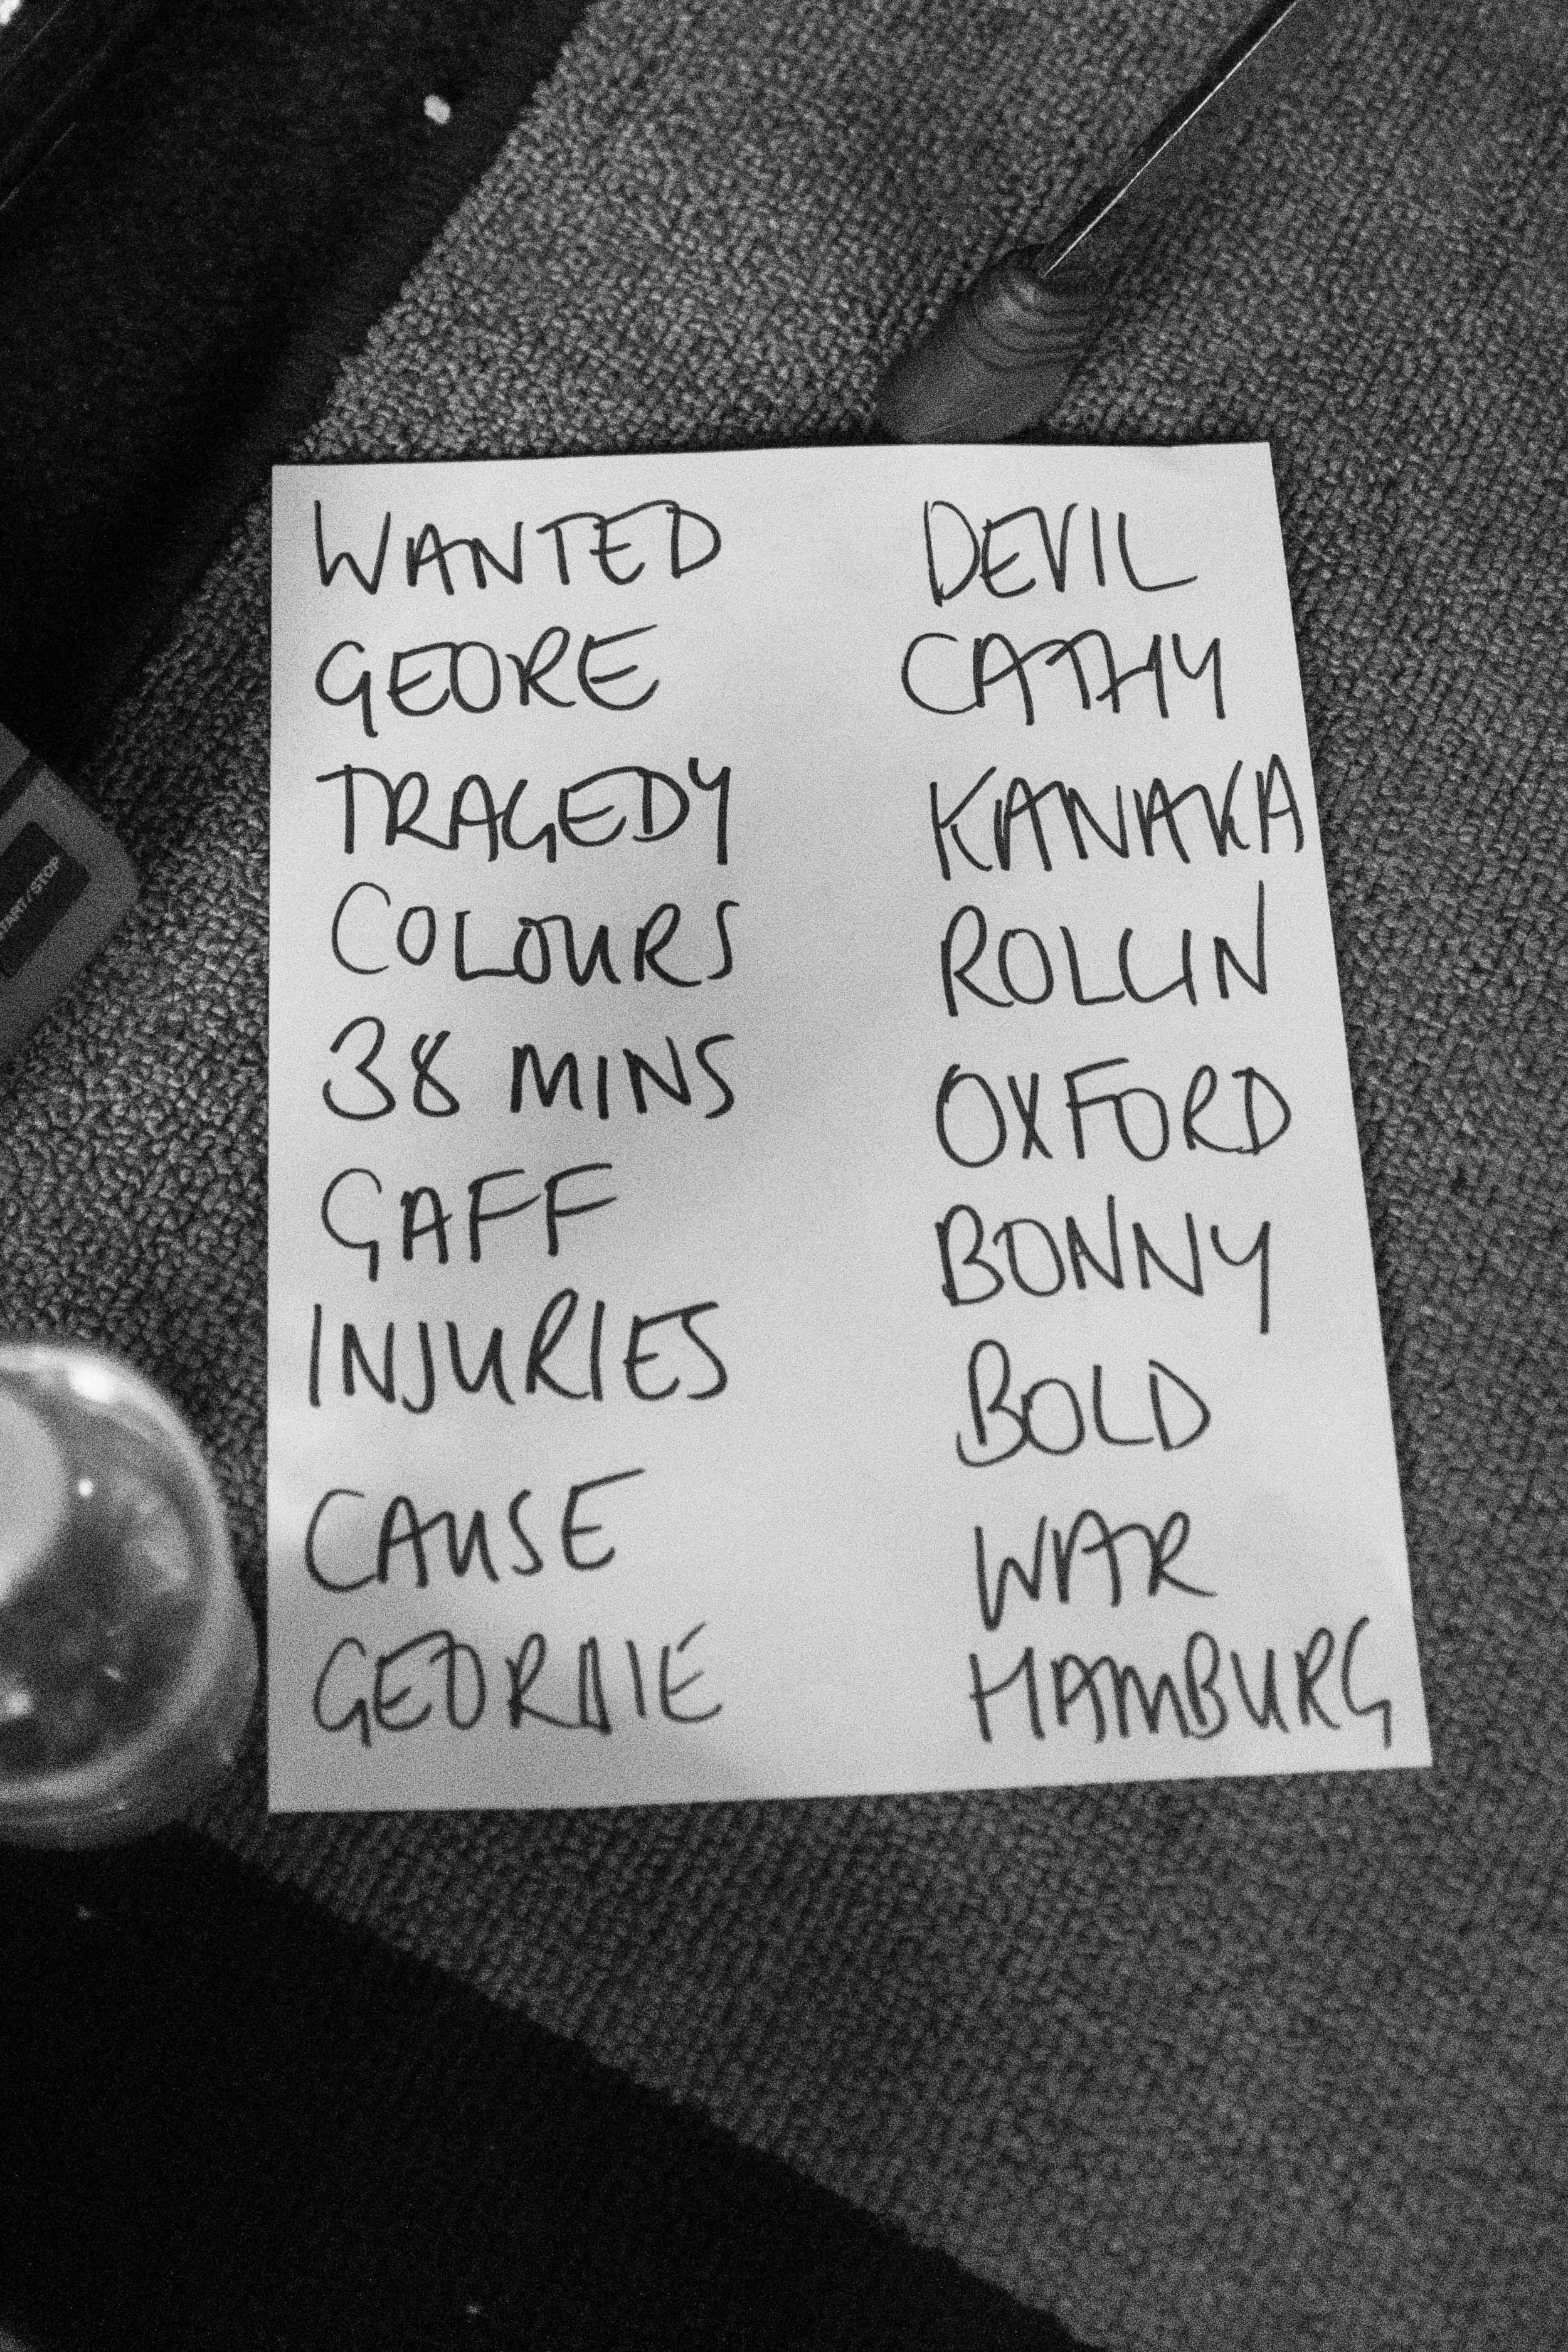 WANTED
GEORE
TRAGEDY
COLOURS
38 MINS
GAFF
INJURIES
CAUSE
GEORDIE
DEVIL
CATHY
KANAKA
ROLLIN
OXFORD
BONNY
BOLD
WAR
HAMBURG